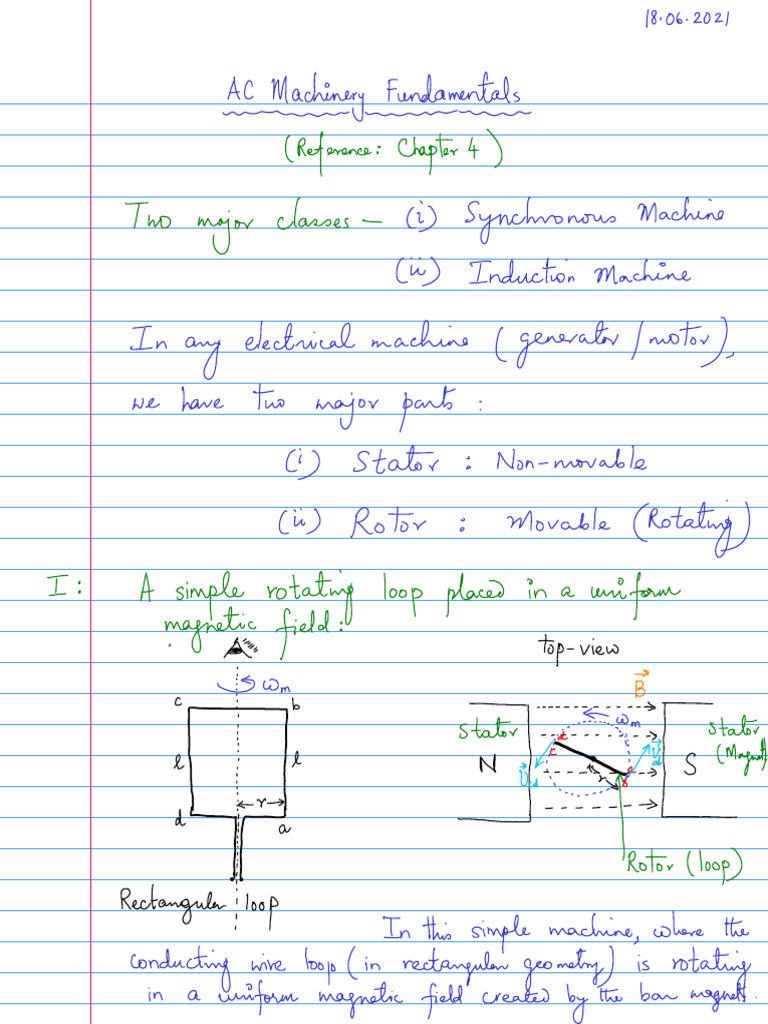 18.06.2021
AC Machinery Fundamentals
(Reference: Chapter 4)
Two major classes — (i) Synchronous Machine
(ii) Induction Machine
In any electrical machine (generator/motor),
we have two major parts :
(i) Stator : Non-movable
(ii) Rotor : Movable (Rotating)
I : A simple rotating loop placed in a uniform
magnetic field:
top-view
ωm
c b
l l
r
d a
B
Stator N
ωm
S Stator
(Magnet
d
c
r
a
b
Rotor (loop)
Rectangular loop
In this simple machine, where the
conducting wire loop (in rectangular geometry) is rotating
in a uniform magnetic field created by the bar magnets.